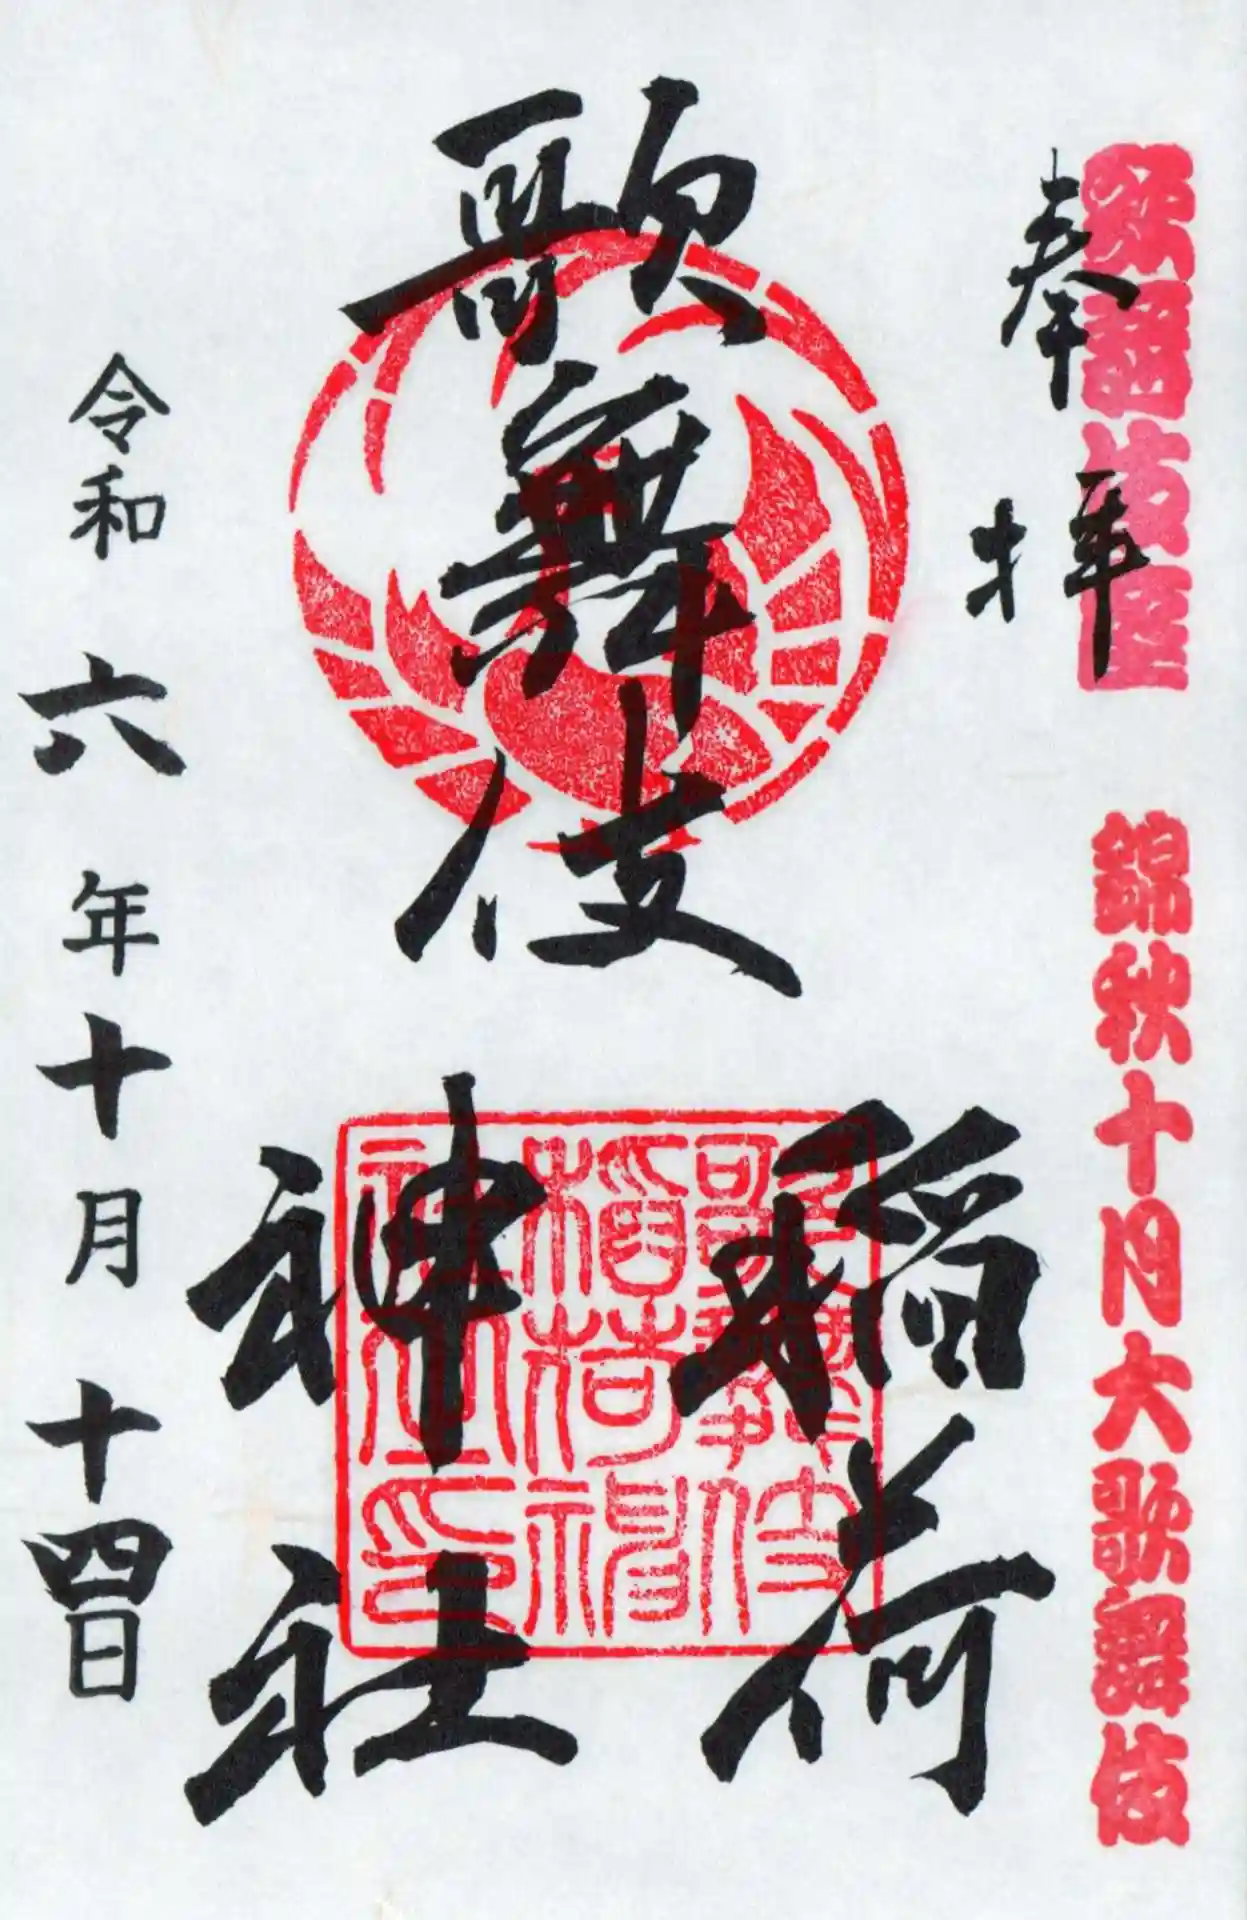 歌舞伎座
錦秋十月大歌舞伎
奉拝
歌舞伎
稲荷
神社
歌舞伎
稲荷神
社印
令和六年十月十四日